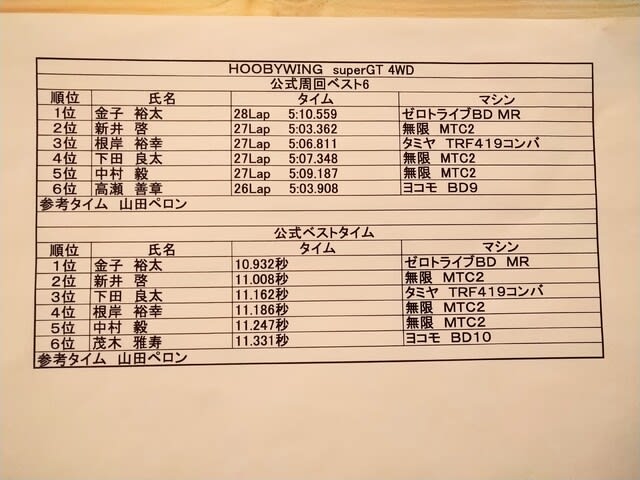 HOOBYWING superGT 4WD
公式周回ベスト6
順位 氏名 タイム マシン
1位 金子 裕太 28Lap 5:10.559 ゼロトライブBD MR
2位 新井 啓 27Lap 5:03.362 無限 MTC2
3位 根岸 裕幸 27Lap 5:06.811 タミヤ TRF419コンバ
4位 下田 良太 27Lap 5:07.348 無限 MTC2
5位 中村 毅 27Lap 5:09.187 無限 MTC2
6位 高瀬 善章 26Lap 5:03.908 ヨコモ BD9
参考タイム 山田ペロン
公式ベストタイム
順位 氏名 タイム マシン
1位 金子 裕太 10.932秒 ゼロトライブBD MR
2位 新井 啓 11.008秒 無限 MTC2
3位 下田 良太 11.162秒 タミヤ TRF419コンバ
4位 根岸 裕幸 11.186秒 無限 MTC2
5位 中村 毅 11.247秒 無限 MTC2
6位 茂木 雅寿 11.331秒 ヨコモ BD10
参考タイム 山田ペロン